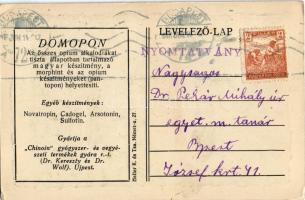 BUDAPEST
DOMOPON
Az összes opium alkaloidákat
tiszta állapotban tartalmazó
magyar készítmény, a
morphint és az opium
készítményeket (pan-
topon) helyettesíti.
Egyéb készítmények:
Novatropin, Cadogel, Arsotonin,
Sulfotin.
Gyártja a
„Chinoin” gyógyszer- és vegyé-
szeti termékek gyára r.-t.
(Dr. Kereszty és Dr.
Wolf). Ujpest.
LEVELEZŐ-LAP
NYOMTATVÁNY
Nagyságos
Dr. Pekár Mihály úr
egyet. m. tanár
Bpest
József krt. 71.